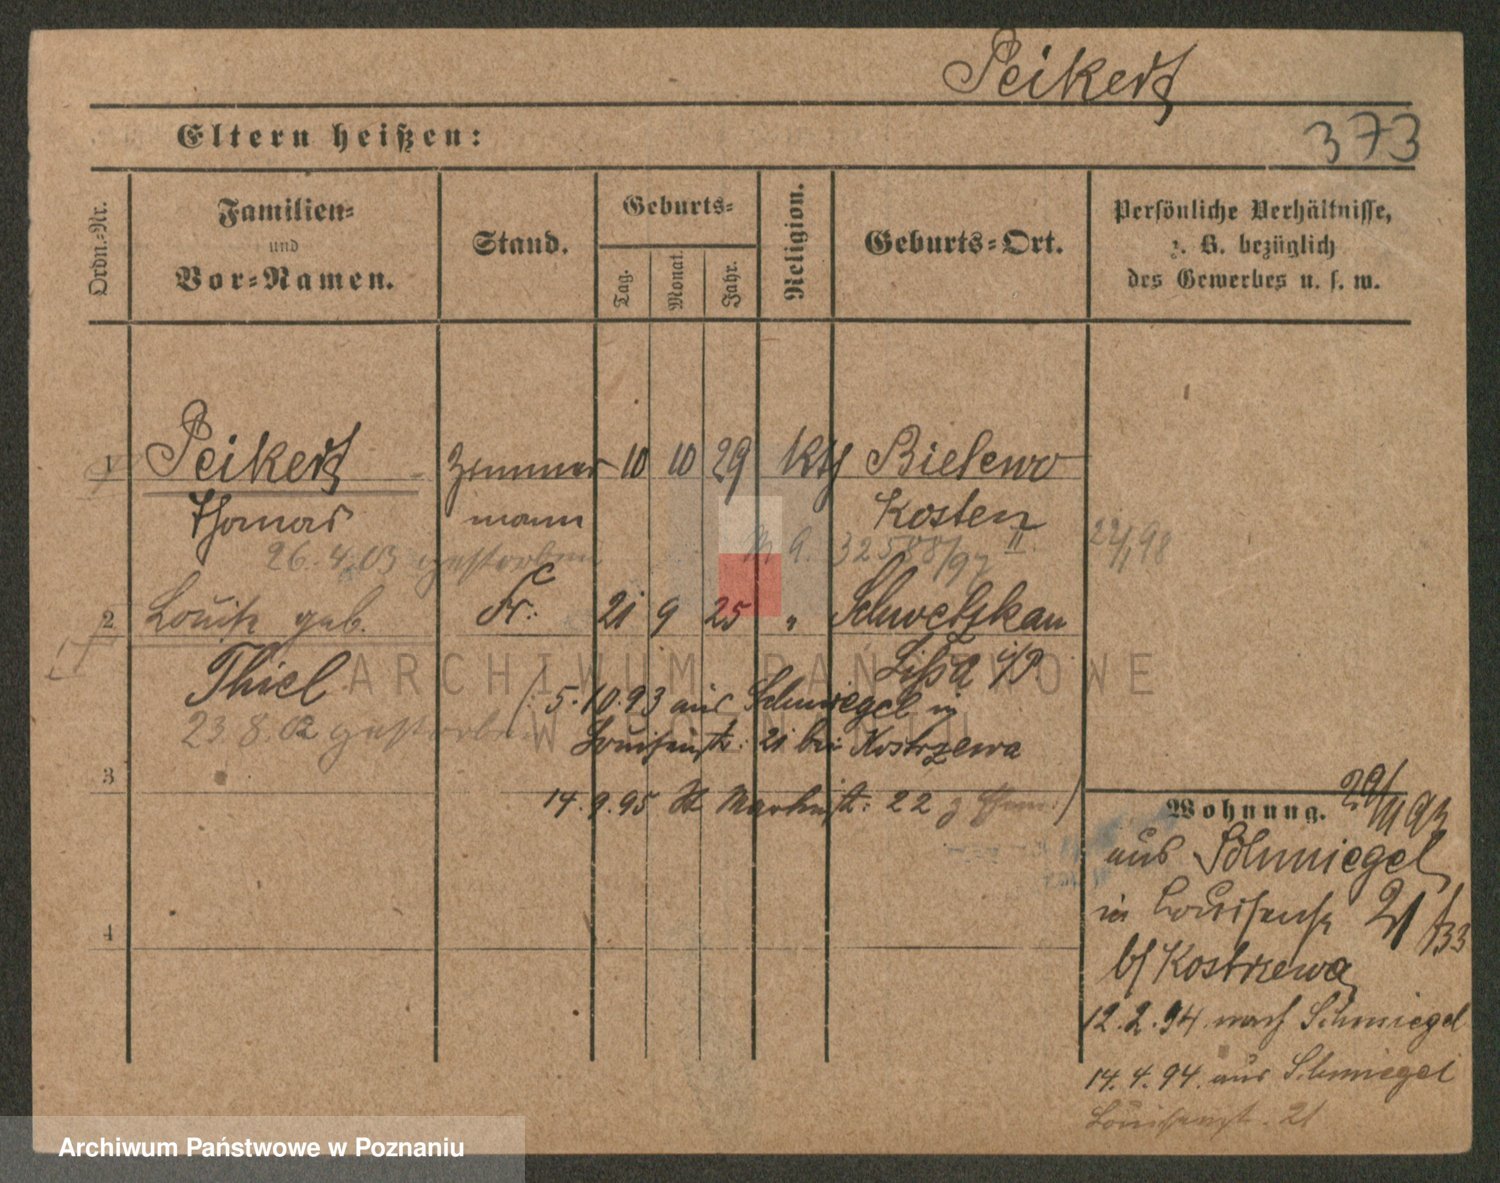 Peikert
Eltern heißen:
373
Ordn.-Nr.
Familien-
und
Vor-Namen.
Stand.
Geburts-
Tag.
Monat.
Jahr.
Religion.
Geburts-Ort.
Persönliche Verhältnisse,
z. B. bezüglich
des Gewerbes u. s. w.
1 Peikert Zimmer 10 10 29 kth Bielewo
Thomas mann Kosten
26.4.03 gestorben 32588/97 II 22/1 98
2 Louise geb. Fr. 21 9 25 " Schwetzkau
Thiel Lissa i/P
ARCHIWUM PAŃSTWOWE
W POZNANIU
(: 5.10.93 aus Schmiegel in
23.8.02 gestorben
Louisenstr: 21 bei Kostrzewa
3
14.9.95 St Martinstr: 22
Wohnung. 29/11 93
aus Schmiegel
in Louisenstr 21 /33
b/ Kostrzewa
4
12.2.94 nach Schmiegel
14.4.94 aus Schmiegel
Louisenst. 21
Archiwum Państwowe w Poznaniu